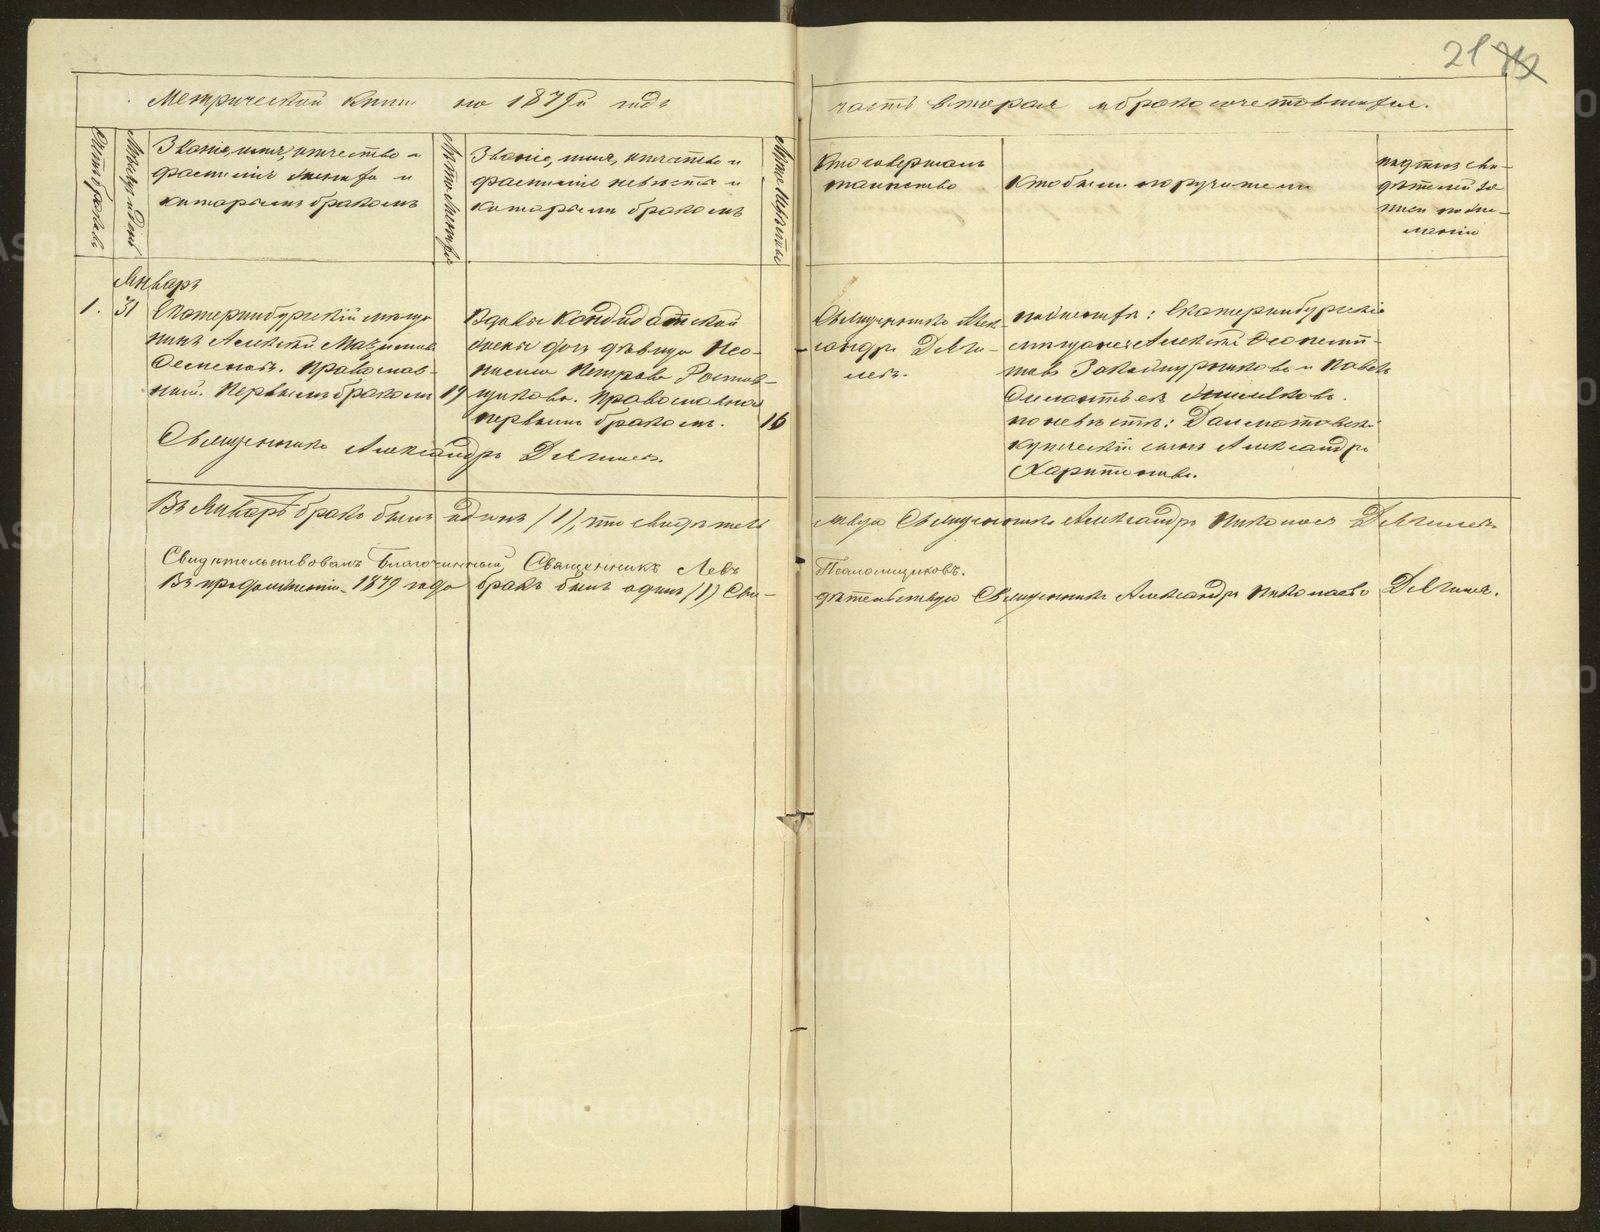 21
Метрической книги на 1879й годъ
часть вторая о бракосочетавшихся.
Счетъ браковъ
Мѣсяцъ и день
Званіе, имя, отчество и
фамилія жениха и
которымъ бракомъ
Лѣта жениха
Званіе, имя, отчество и
фамилія невѣсты и
которымъ бракомъ
Лѣта невѣсты
Кто совершалъ
таинство
Кто были поручители
подпись сви-
дѣтелей за
писи по же-
ланію
Январь
1. 31
Екатеринбургскій мѣща
нинъ Алексѣй
Семеновъ. Православ-
ный. Первымъ бракомъ
19
Вдовы Кандидатской
дочь дѣвица
Петрова Ростов-
щикова. Православная
первымъ бракомъ.
16
Священникъ Алек-
сандръ Дягі-
левъ.
по женихѣ: Екатеринбургскіе
мѣщане Алексѣй
и Павелъ
по невѣстѣ: Далматовскій
купеческій сынъ Александръ
Харитоновъ.
Священникъ Александръ Дягилевъ.
Въ Январѣ бракъ былъ одинъ (1), что свидѣтель
ствую Священникъ Александръ Николаевъ Дягилевъ
Свидѣтельствовалъ Благочинный Священникъ Левъ
Псаломщиковъ.
Въ продолженіи 1879 года бракъ былъ одинъ (1) Сви-
дѣтельствую Священникъ Александръ Николаевъ Дягилевъ.
METRIKI.GASO-URAL.RU